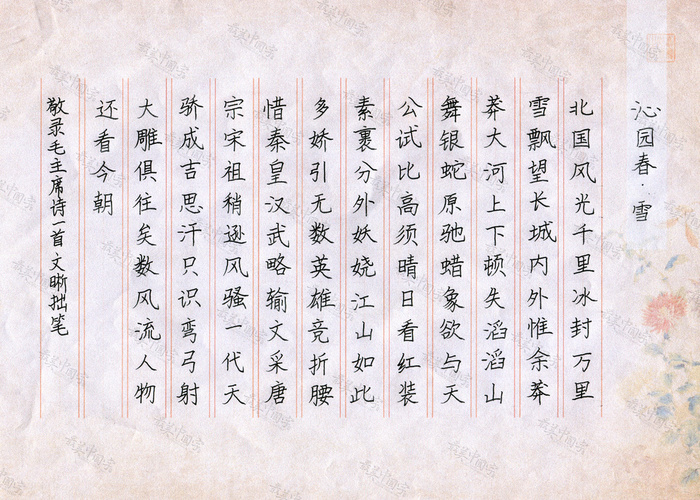 沁园春·雪
北国风光千里冰封万里
雪飘望长城内外惟余莽
莽大河上下顿失滔滔山
舞银蛇原驰蜡象欲与天
公试比高须晴日看红装
素裹分外妖娆江山如此
多娇引无数英雄竞折腰
惜秦皇汉武略输文采唐
宗宋祖稍逊风骚一代天
骄成吉思汗只识弯弓射
大雕俱往矣数风流人物
还看今朝
敬录毛主席诗一首 文晰拙笔